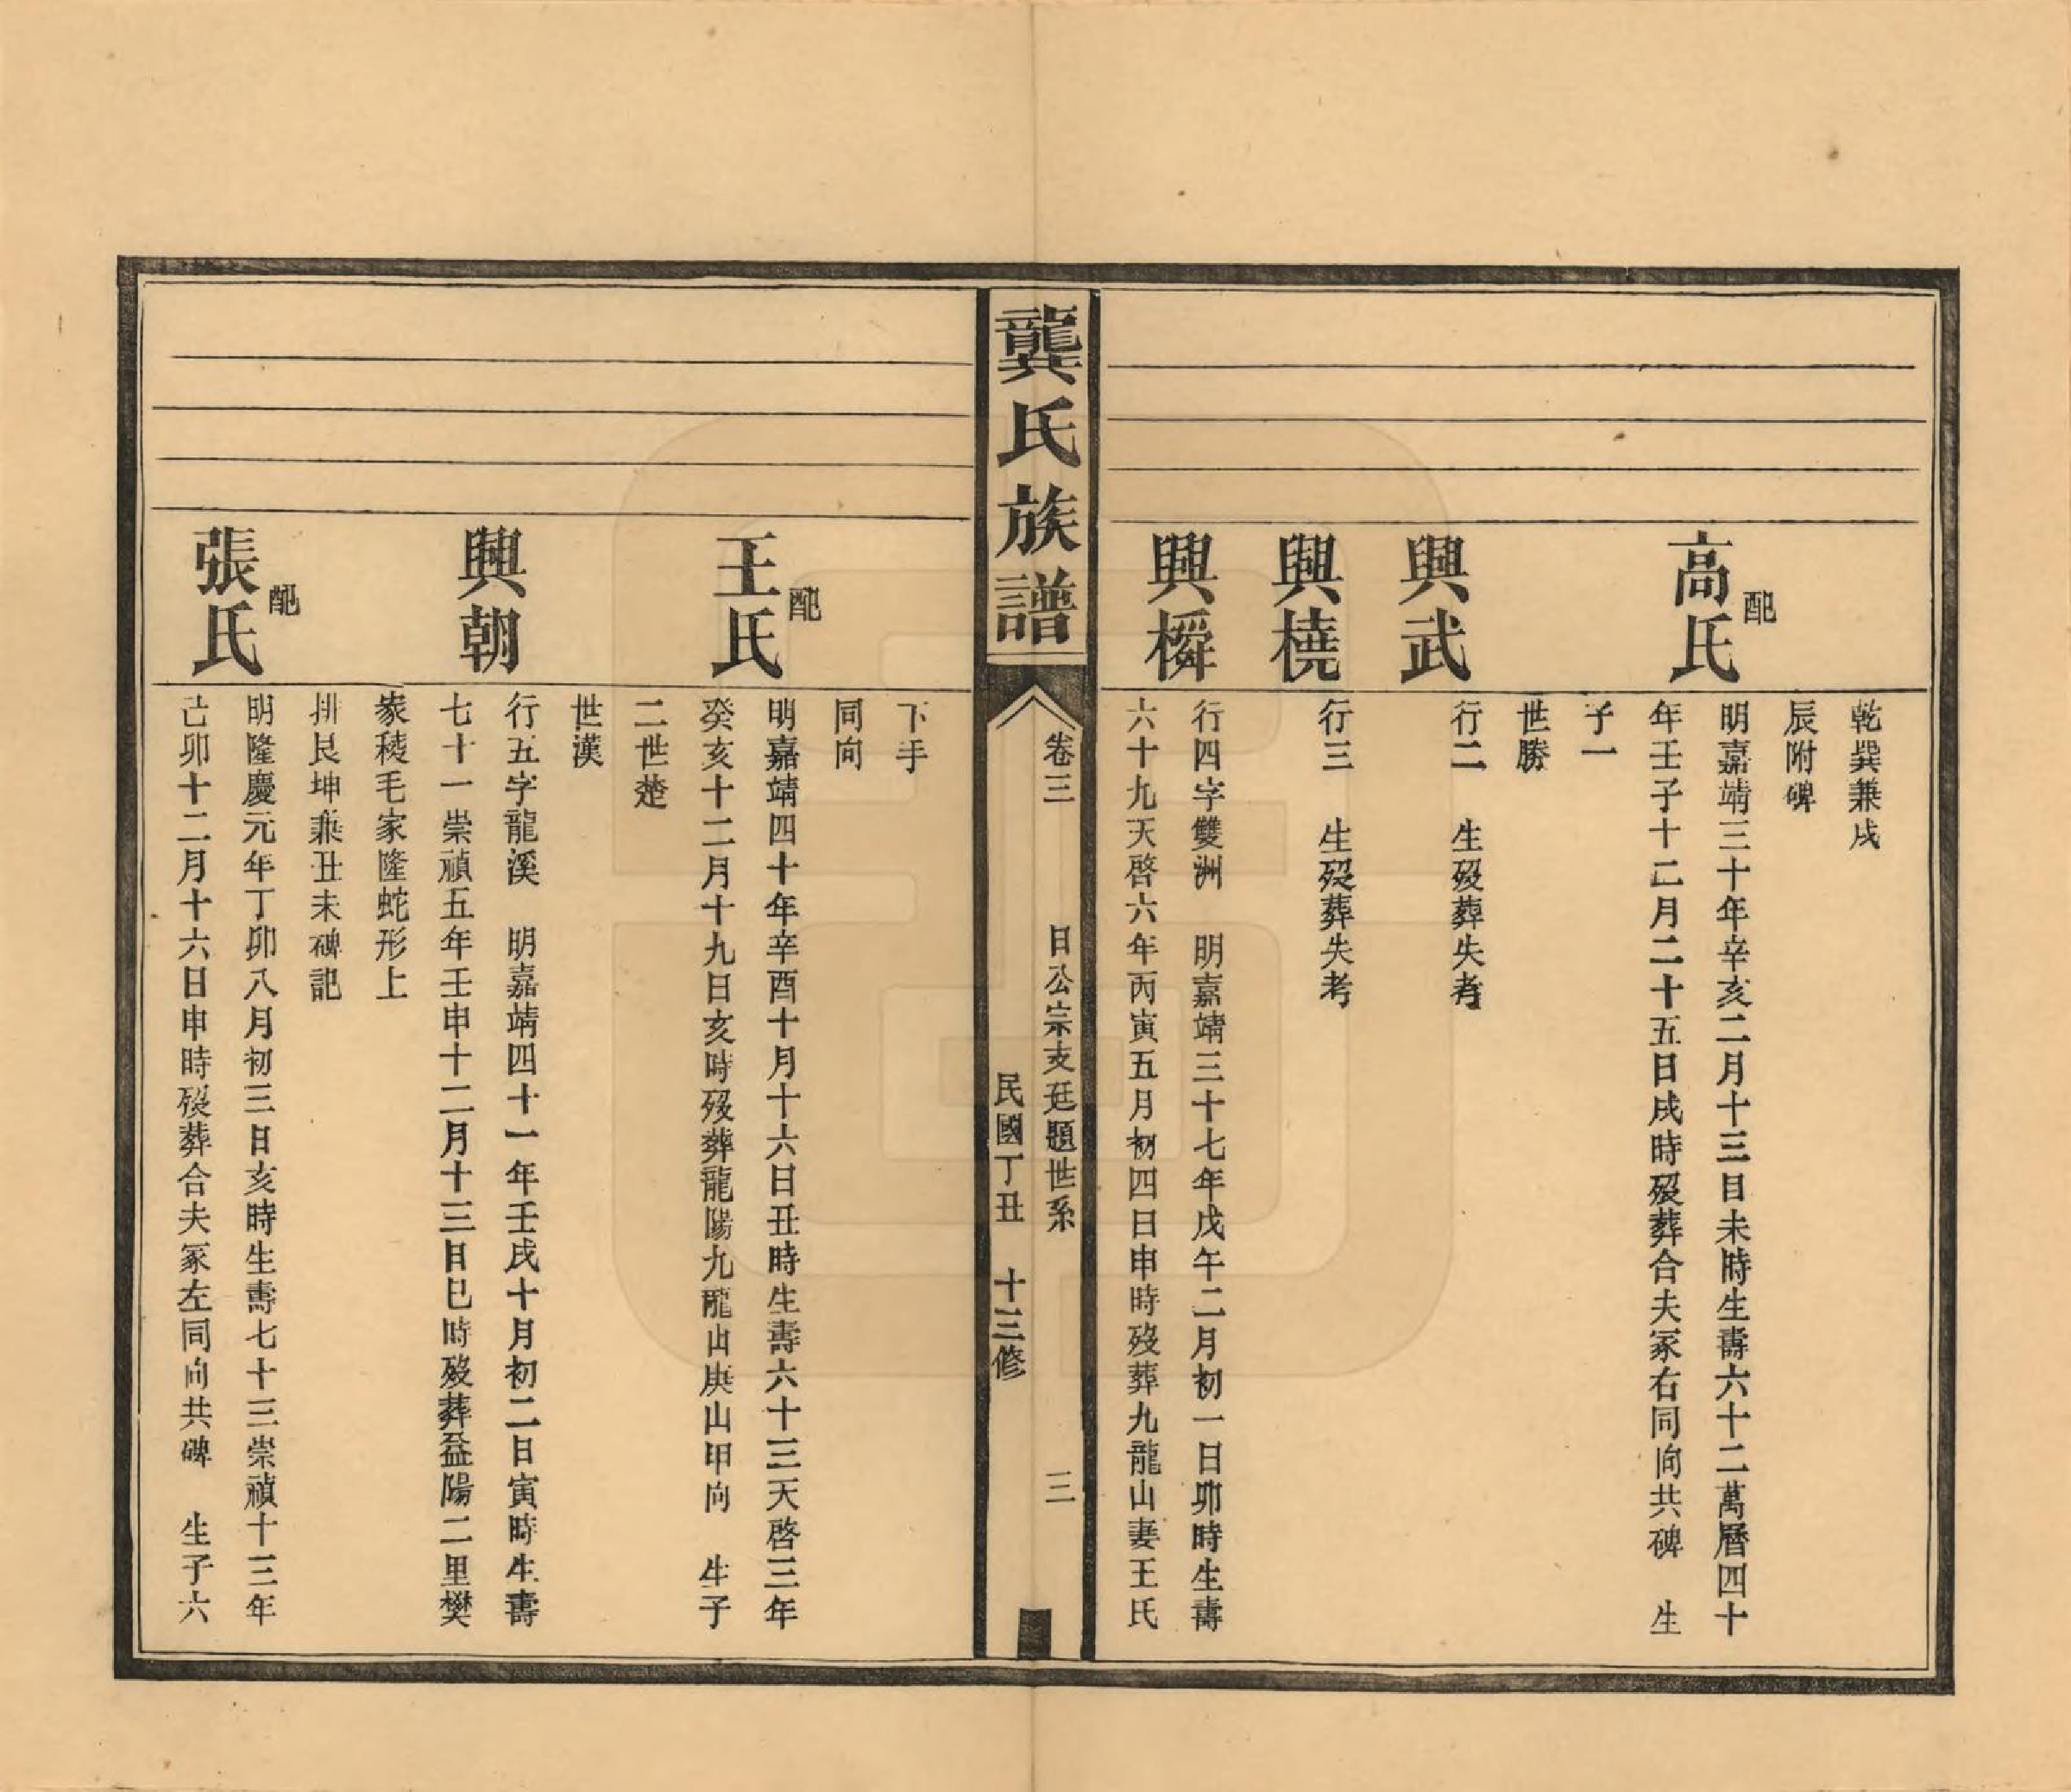 乾巽兼戌
辰附碑
配
高氏
明嘉靖三十年辛亥二月十三日未時生壽六十二萬曆四十
年壬子十二月二十五日戌時歿葬合夫冢右同向共碑　生
子一
世勝
興武
行二　生歿葬失考
興橈
行三　生歿葬失考
興橓
行四字雙洲　明嘉靖三十七年戊午二月初一日卯時生壽
六十九天啓六年丙寅五月初四日申時歿葬九龍山妻王氏
龔氏族譜
卷三　日公宗支廷題世系　三
民國丁丑　十三修
下手
同向
配
王氏
明嘉靖四十年辛酉十月十六日丑時生壽六十三天啓三年
癸亥十二月十九日亥時歿葬龍陽九龍山庚山甲向　生子
二世楚
世漢
興朝
行五字龍溪　明嘉靖四十一年壬戌十月初二日寅時生壽
七十一崇禎五年壬申十二月十三日巳時歿葬益陽二里樊
家稜毛家隆蛇形上
排艮坤兼丑未碑記
配
張氏
明隆慶元年丁卯八月初三日亥時生壽七十三崇禎十三年
己卯十二月十六日申時歿葬合夫冢左同向共碑　生子六